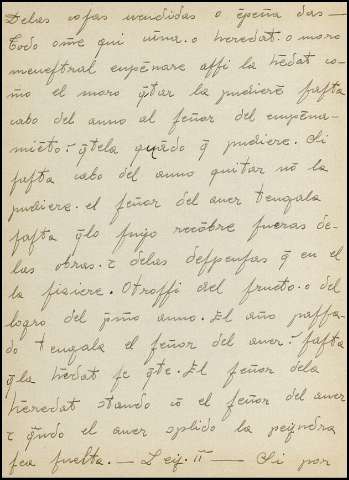 Delas cosas uendidas o ẽpeña das —
Todo ome qui uina. o heredat. o moro
menestral enpẽnare assi la hẽdat co-
mo el moro q̃tar la pudiere fasta
cabo del anno al señor del empẽna-
miẽto. τ q̃tela quãdo q̃ pudiere. Si
fasta cabo del anno quitar no la
pudiere. el señor del auer tengala
fasta q̃lo suyo recobre fueras de-
las obras. τ delas despensas q̃ en el
la fiziere. Otrossi del fructo. o del
logro del p̃mo anno. El año passa-
do tengala el señor del auer. τ fasta
q̃la hẽdat se q̃te. El señor dela
heredat stando cõ el señor del auer
τ q̃ndo el auer cplido la peyndra
sea suelta. — Ley. II — Si por